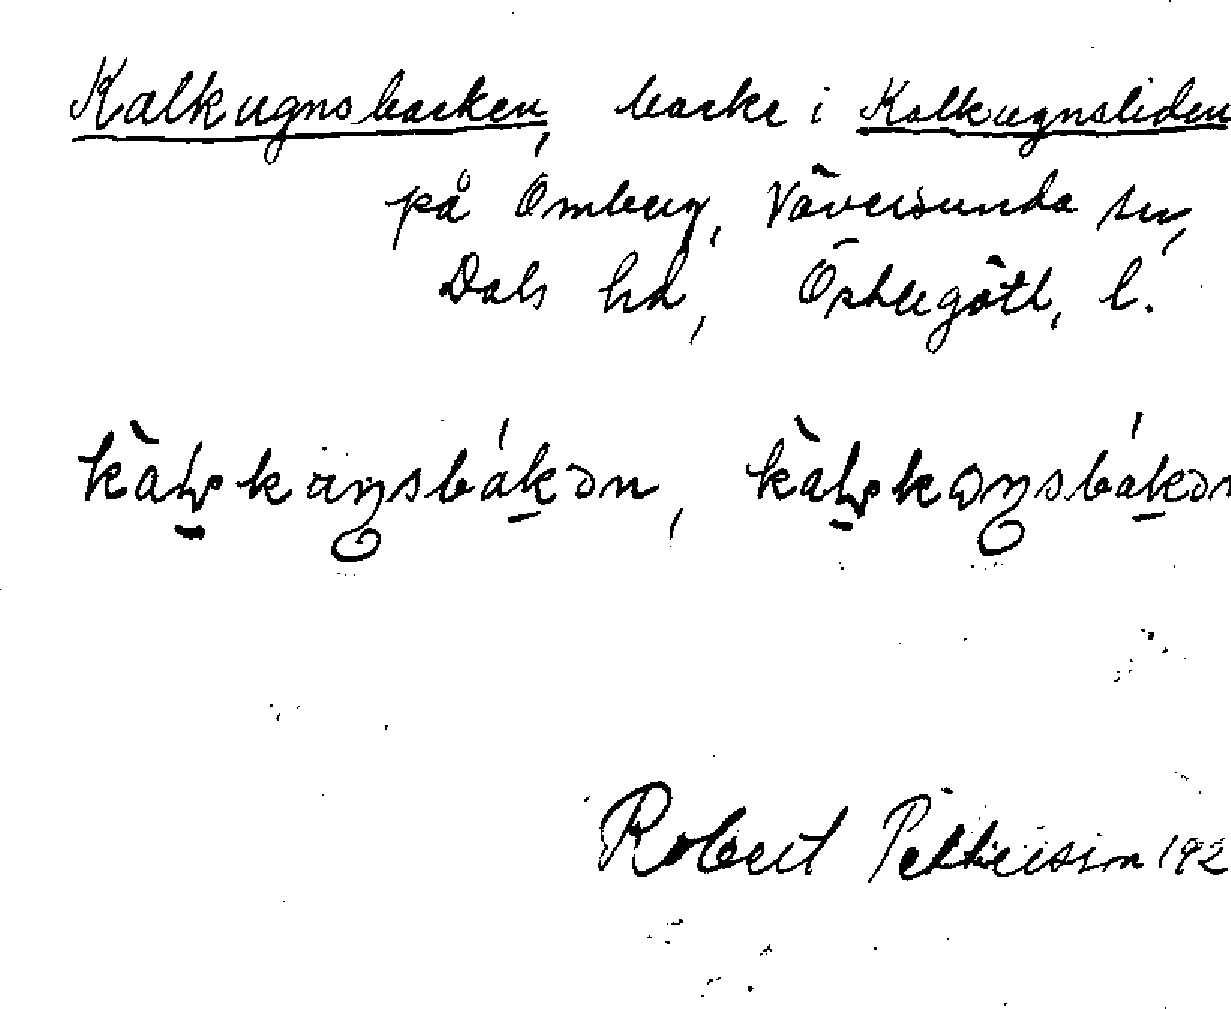 Kalkugnsbacken, backe i Kalkugnsliden
på Omberg, Väversunda sn,
Dals hd, Östergötl. l.
Robert Pettersson 192